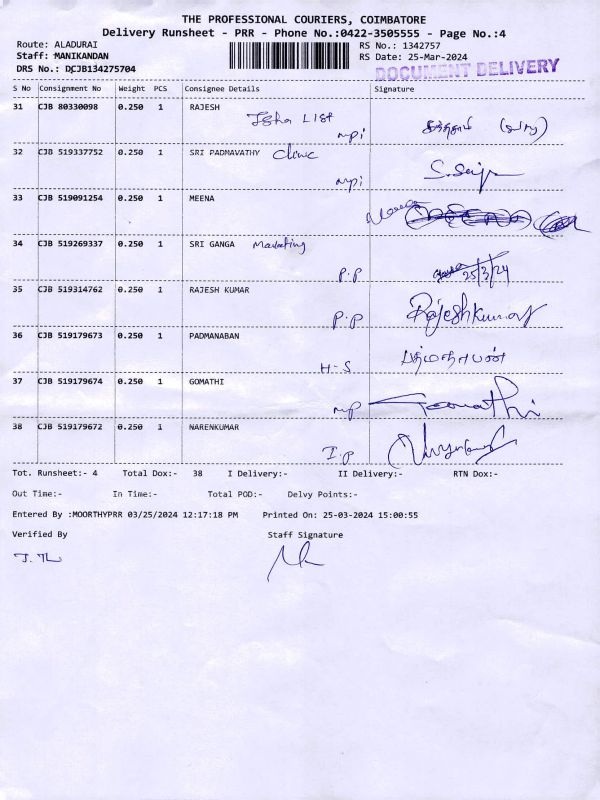 THE PROFESSIONAL COURIERS, COIMBATORE
Delivery Runsheet - PRR - Phone No.:0422-3505555 - Page No.:4
Route: ALADURAI RS No.: 1342757
Staff: MANIKANDAN RS Date: 25-Mar-2024
DRS No.: DCJB134275704 DOCUMENT DELIVERY
S No Consignment No Weight PCS Consignee Details Signature
31 CJB 80330098 0.250 1 RAJESH
32 CJB 519337752 0.250 1 SRI PADMAVATHY Clinic
33 CJB 519091254 0.250 1 MEENA
34 CJB 519269337 0.250 1 SRI GANGA Marketing
P.P 25/3/24
35 CJB 519314762 0.250 1 RAJESH KUMAR
P.P Rajeshkumar
36 CJB 519179673 0.250 1 PADMANABAN
H-S பத்மநாபன்
37 CJB 519179674 0.250 1 GOMATHI
Gomathi
38 CJB 519179672 0.250 1 NARENKUMAR
I.P
Tot. Runsheet:- 4 Total Dox:- 38 I Delivery:- II Delivery:- RTN Dox:-
Out Time:- In Time:- Total POD:- Delvy Points:-
Entered By :MOORTHYPRR 03/25/2024 12:17:18 PM Printed On: 25-03-2024 15:00:55
Verified By Staff Signature